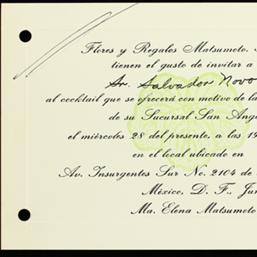 Flores y Regalos Matsumoto, S.
tienen el gusto de invitar a
Sr. Salvador Novo
al cocktail que se ofrecerá con motivo de la
de su Sucursal San Ang
el miércoles 28 del presente, a las 19
en el local ubicado en
Av. Insurgentes Sur No. 2104 de
México, D. F., Jun
Ma. Elena Matsumoto